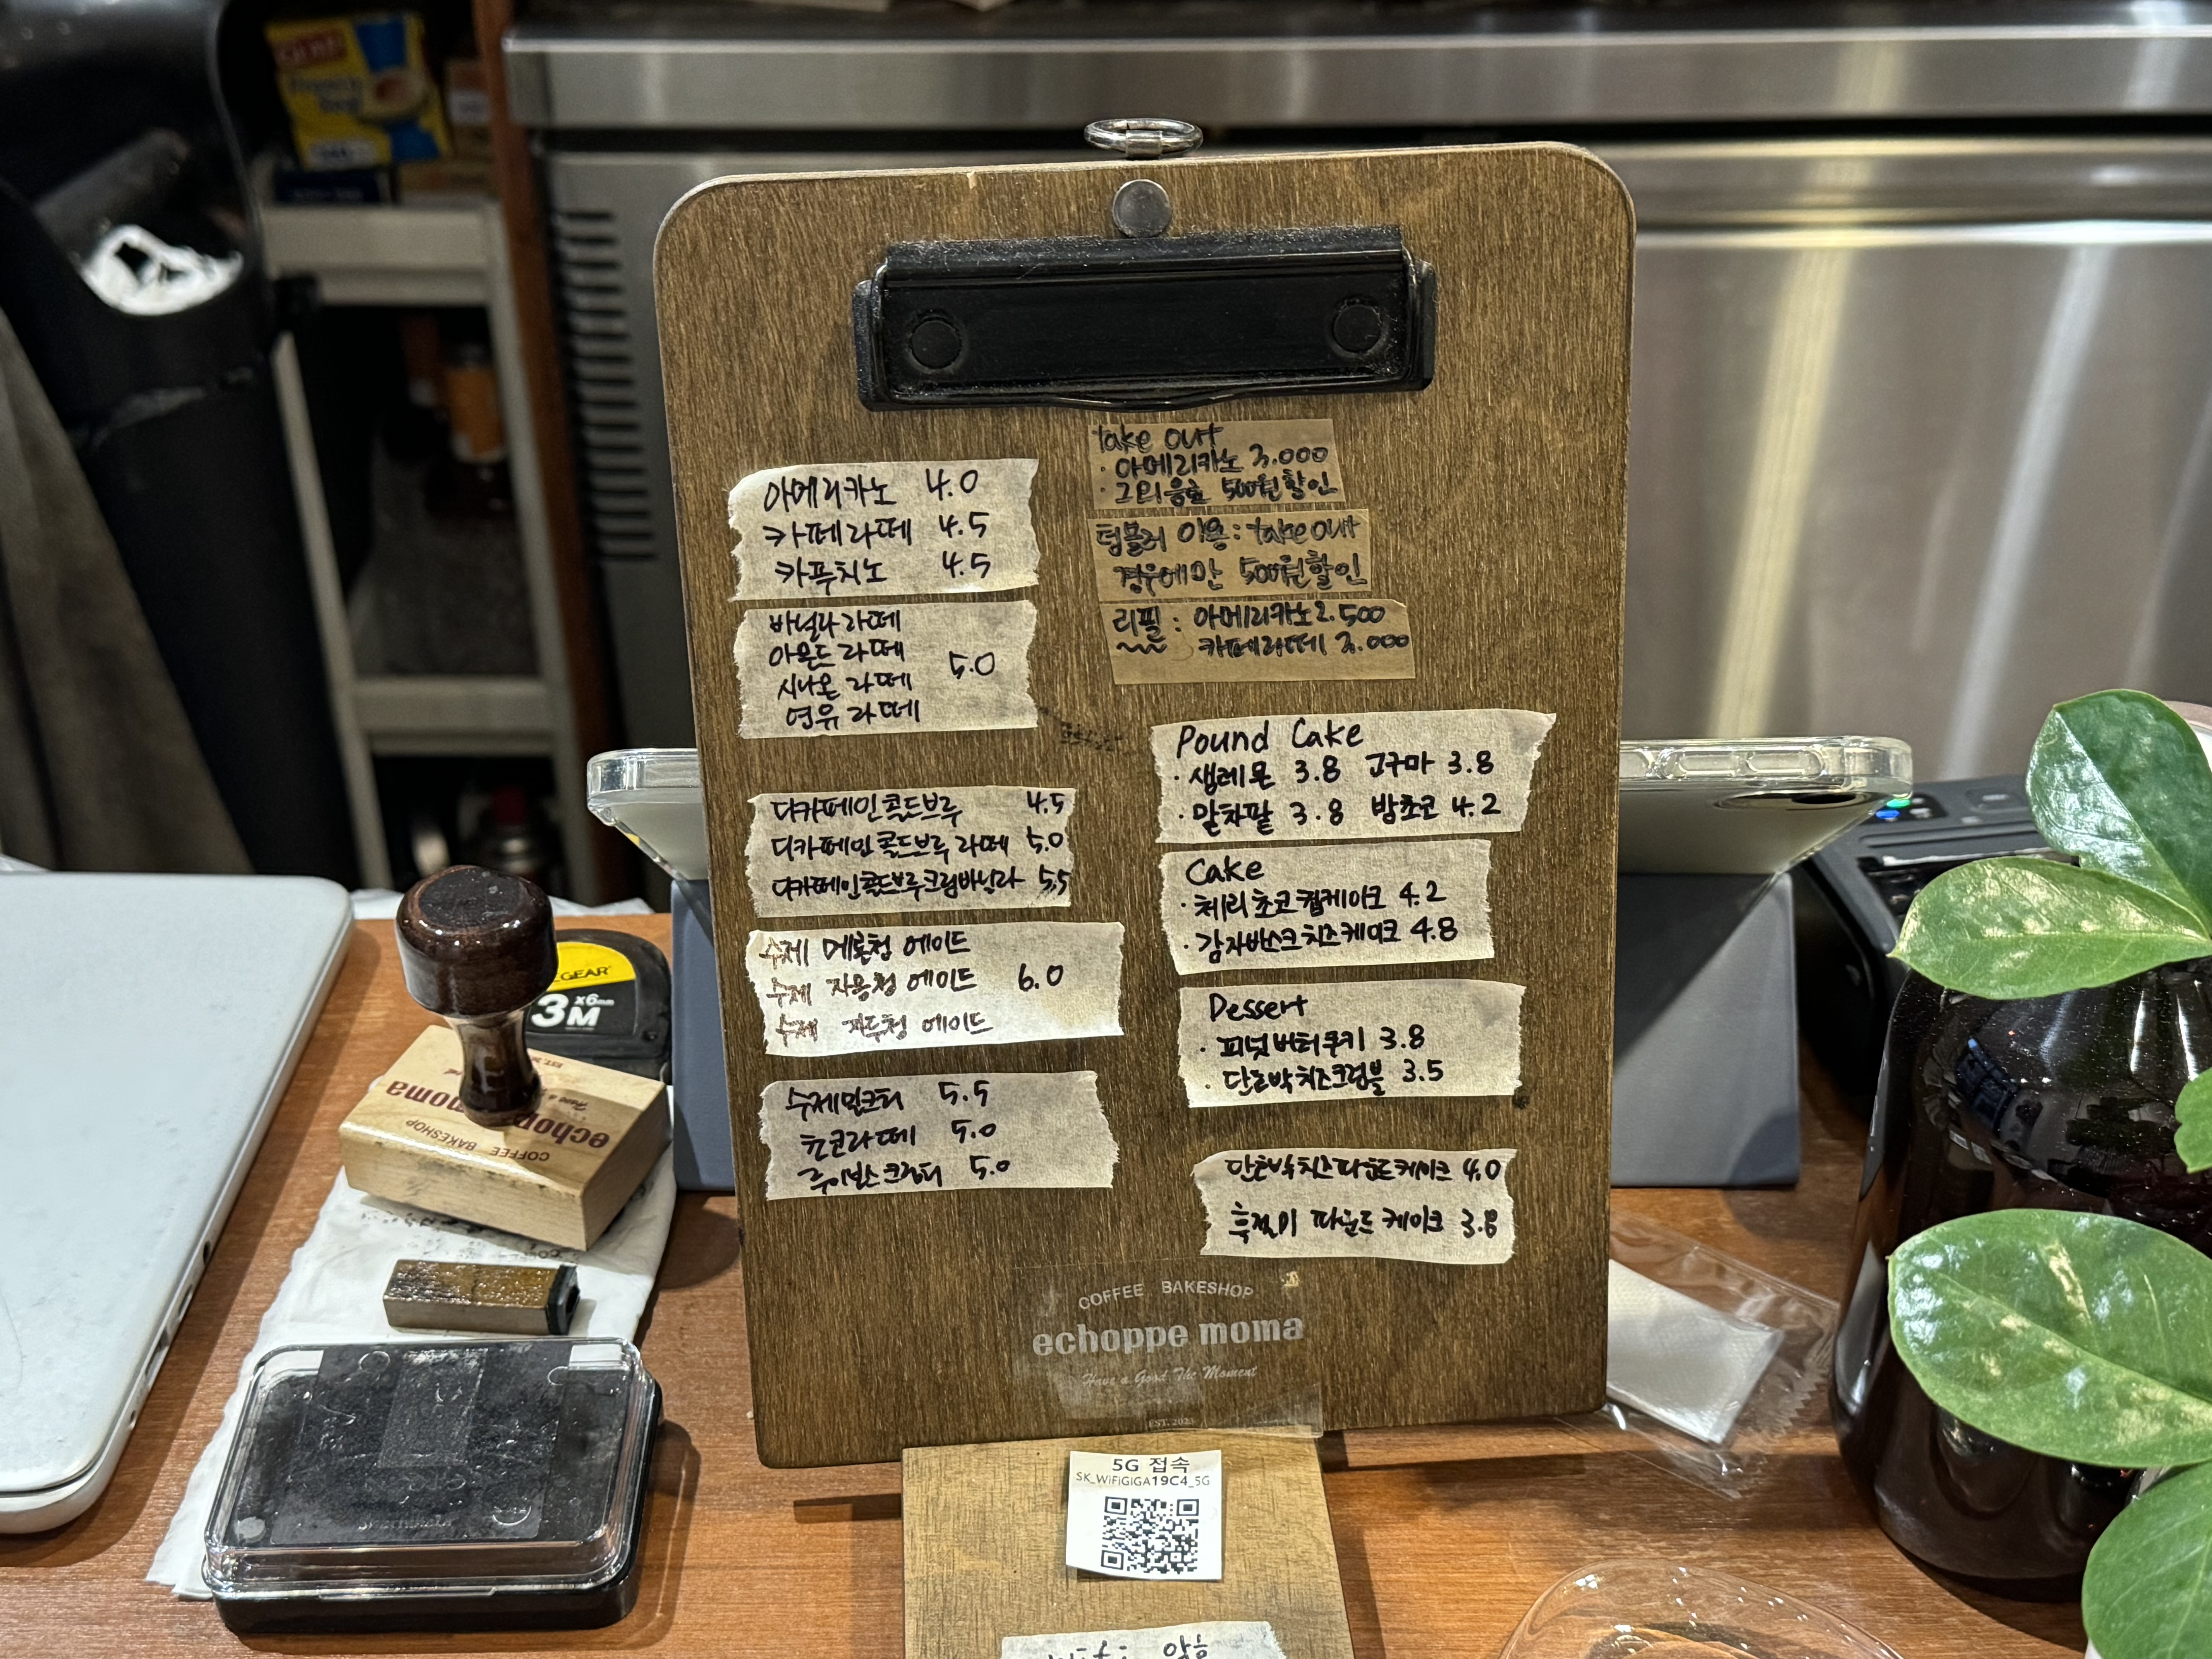 아메리카노 4.0
카페라떼 4.5
카푸치노 4.5
바닐라 라떼
아몬드 라떼
시나몬 라떼
연유 라떼
5.0
디카페인콜드브루 4.5
디카페인 콜드브루 라떼 5.0
디카페인콜드브루크림바닐라 5.5
수제 메론청 에이드
수제 자몽청 에이드 6.0
수제 자두청 에이드
수제밀크티 5.5
쵸코라떼 5.0
루이보스크림티 5.0
take out
· 아메리카노 3.000
· 그외음료 500원할인
텀블러 이용 : take out
경우에만 500원할인
리필 : 아메리카노 2.500
카페라떼 3.000
Pound Cake
· 생레몬 3.8 고구마 3.8
· 말차팥 3.8 밤쵸코 4.2
Cake
· 체리쵸코컵케이크 4.2
· 감자바스크치즈케이크 4.8
Dessert
· 피넛버터쿠키 3.8
· 단호박치즈크럼블 3.5
단호박치즈파운드케이크 4.0
파운드케이크 3.8
COFFEE BAKESHOP
echoppe moma
Have a Good The Moment
EST. 2023
5G 접속
SK_WiFiGIGA19C4_5G
GEAR
3M x6mm
echoppe moma
COFFEE BAKESHOP